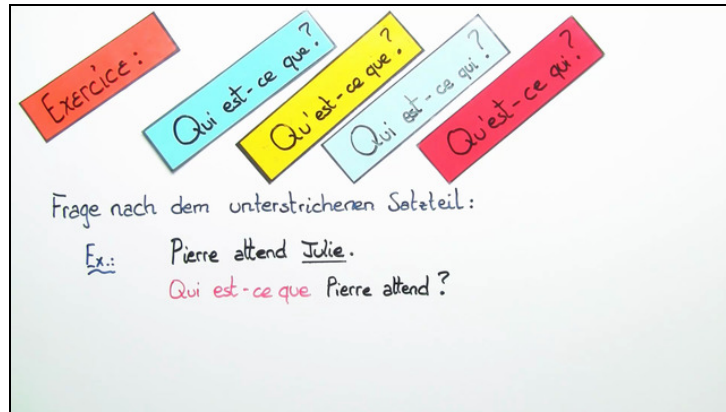 Exercice:
Qui est-ce que?
Qu'est-ce que?
Qui est-ce qui?
Qu'est-ce qui?
Frage nach dem unterstrichenen Satzteil:
Ex.: Pierre attend Julie.
Qui est-ce que Pierre attend?